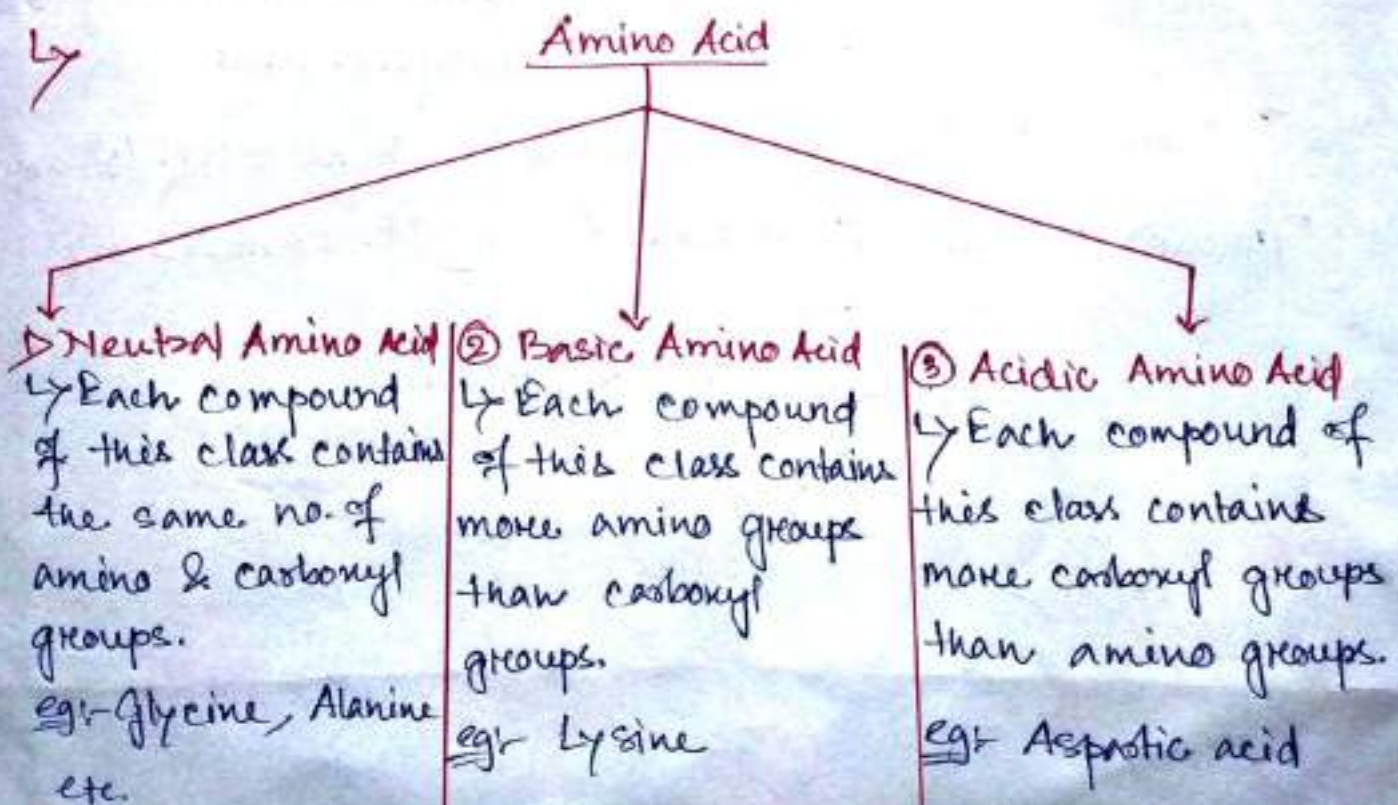 Amino Acid
Neutral Amino Acid
↳ Each compound
of this class contains
the same no. of
amino & carboxyl
groups.
eg:- Glycine, Alanine
etc.
② Basic Amino Acid
↳ Each compound
of this class contains
more amino groups
than carboxyl
groups.
eg:- Lysine
③ Acidic Amino Acid
↳ Each compound of
this class contains
more carboxyl groups
than amino groups.
eg:- Aspartic acid